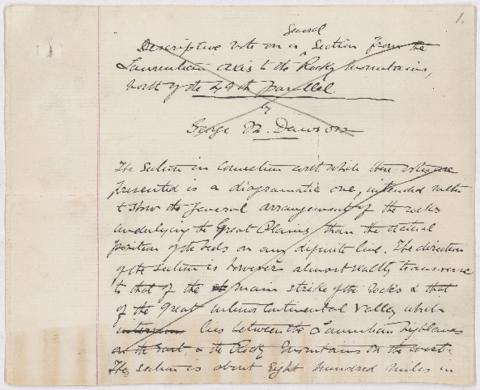 1.
General
Descriptive Note on a Section from the
Laurentian axis to the Rocky Mountains,
North of the 49th parallel
by
George M. Dawson
The Section in connection with which these notes are
presented is a diagramatic one, intended rather
to show the general arrangement of the rocks
underlying the Great Plains than the actual
position of the beds on any definite line. The direction
of the section is however almost exactly transverse
to that of the main strike of the rocks & that
of the Great interContinental Valley which
lies between the Laurentian highlands
on the east & the Rocky Mountains on the west.
The section is about Eight hundred miles in